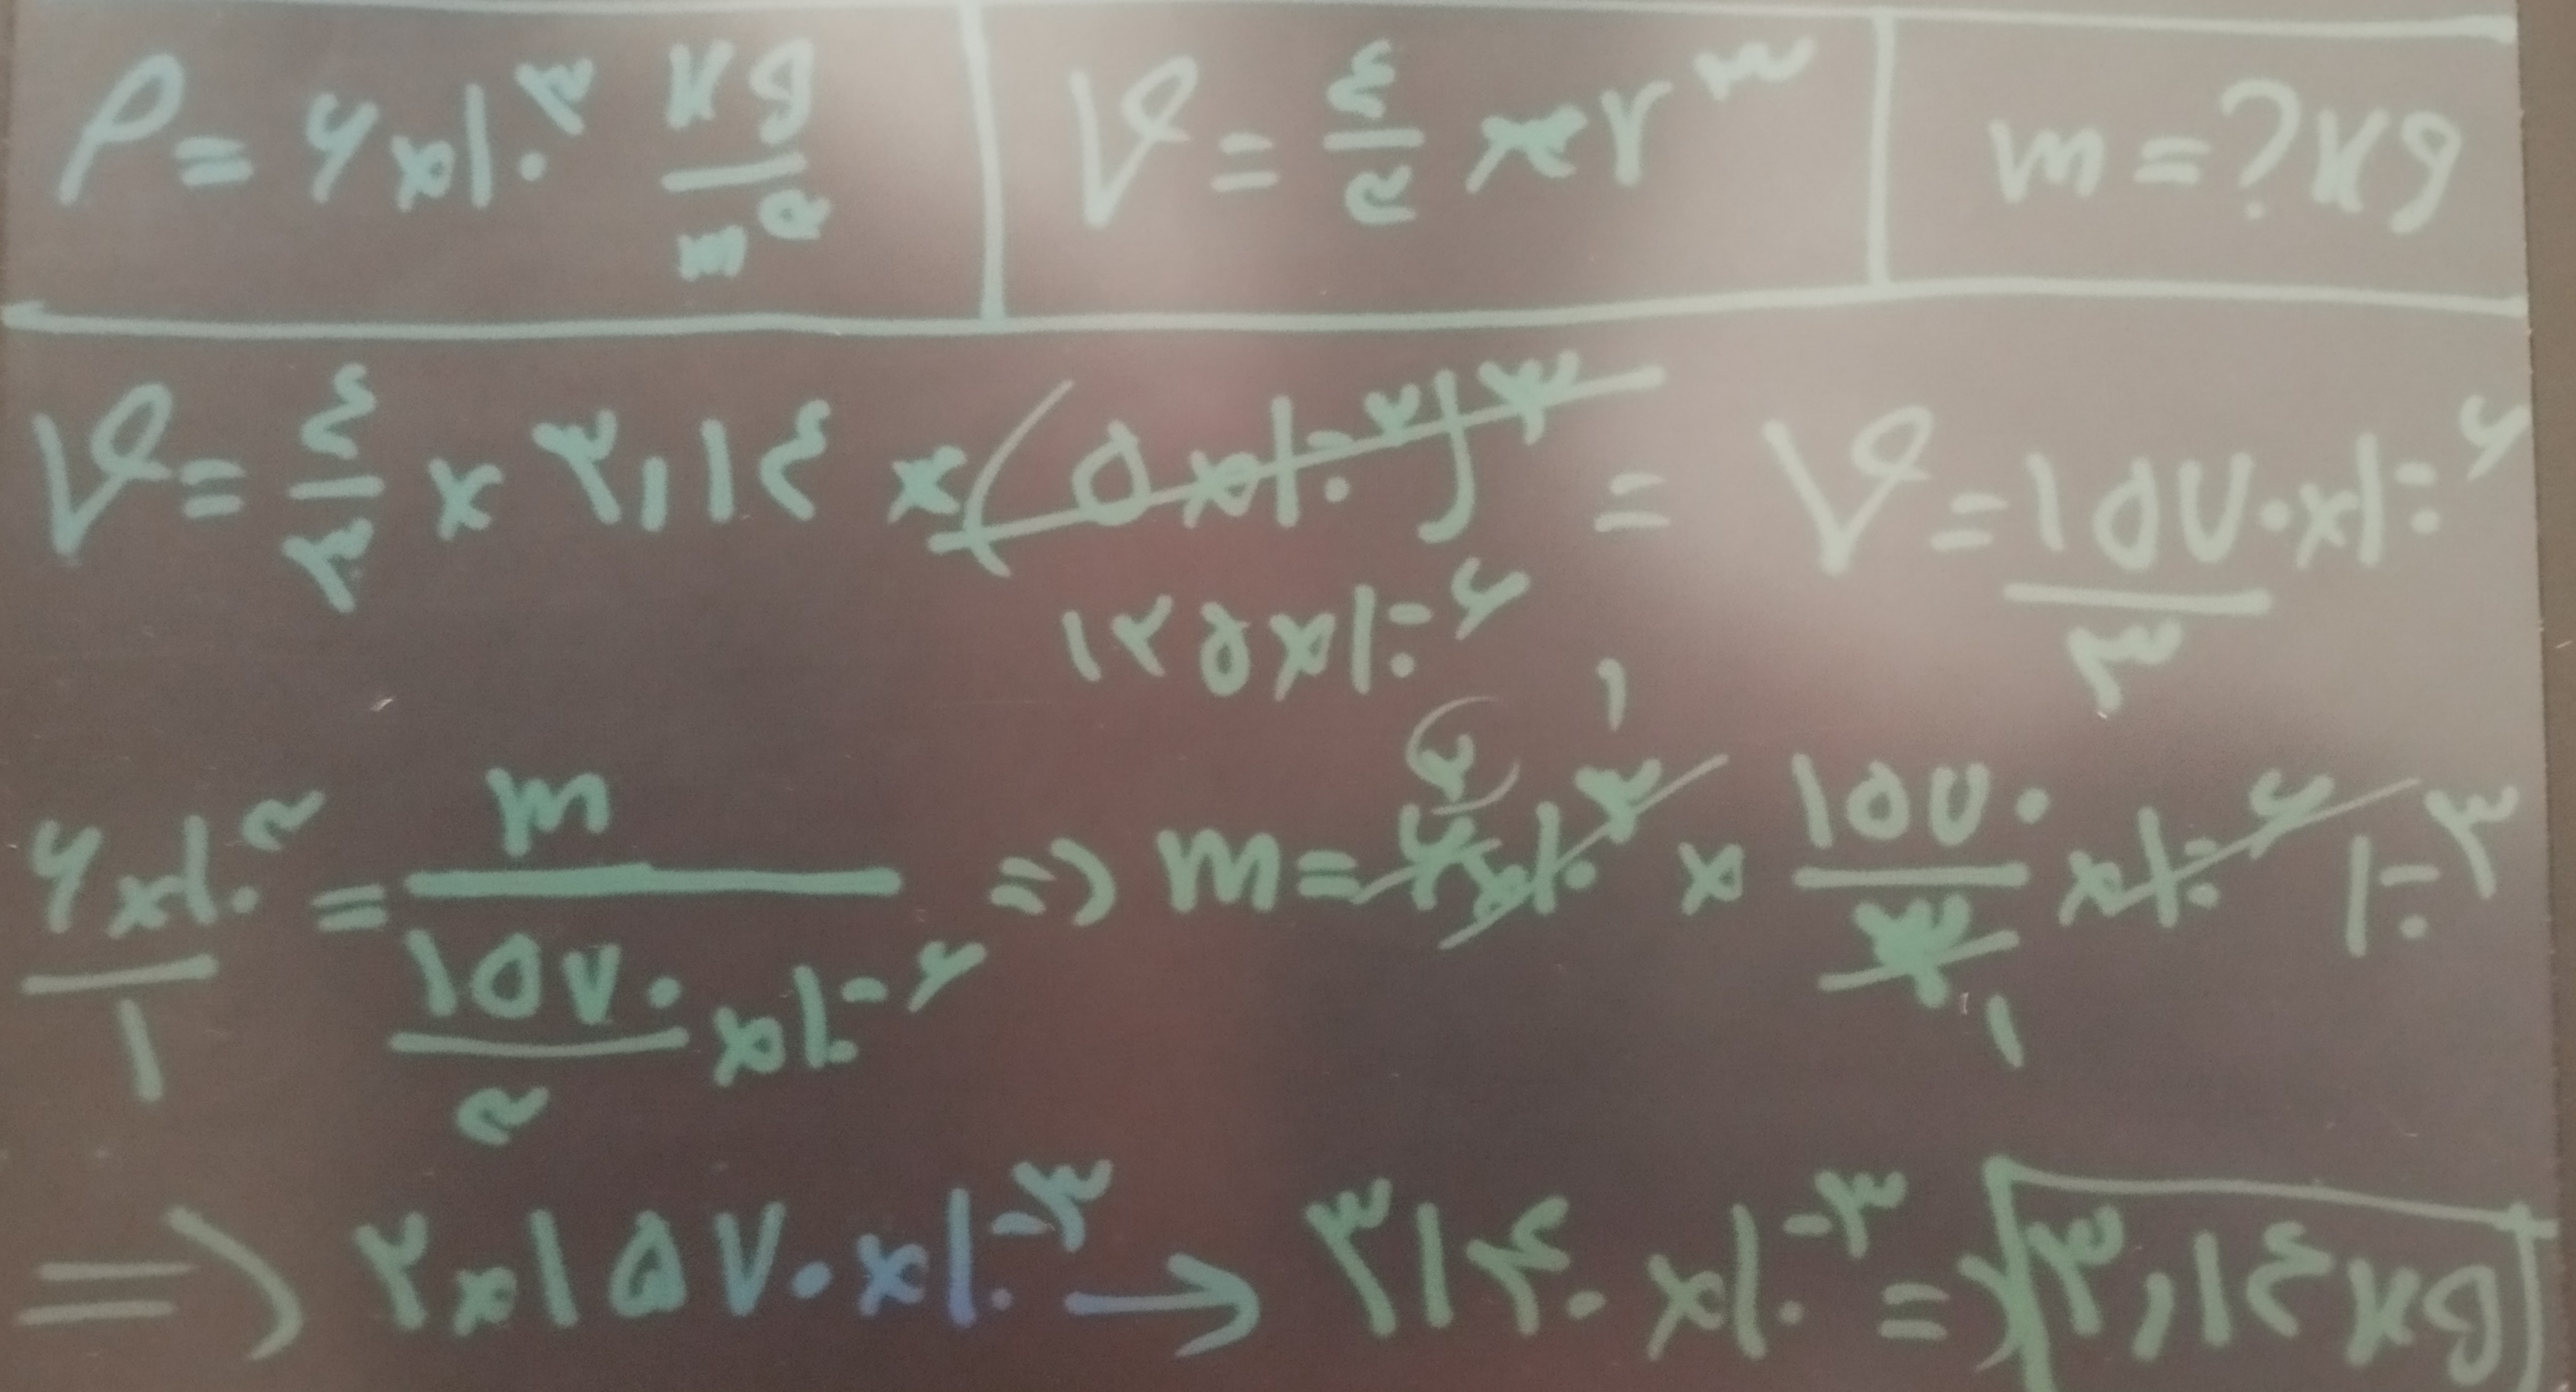 ρ = ۶×۱۰^۳ kg/m^۳ | V = ۴/۳ πr^۳ | m = ? kg
V = ۴/۳ × ۳,۱۴ × (۵×۱۰^-۲)^۳ = V = ۱۵۷۰/۳ ×۱۰^-۶
۱۲۵×۱۰^-۶
۶×۱۰^۳/۱ = m / (۱۵۷۰/۳ ×۱۰^-۶) => m = ۶×۱۰^۳ × ۱۵۷۰/۳ ×۱۰^-۶ ۱۰^-۳
=> ۲×۱۵۷۰×۱۰^-۳ → ۳۱۴۰×۱۰^-۳ = ۳,۱۴ kg